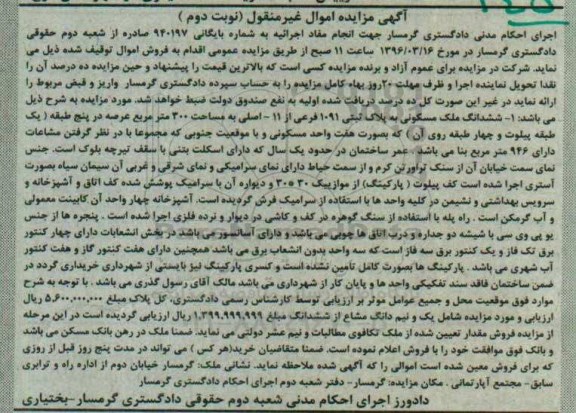 آگهی مزایده اموال غیرمنقول (نوبت دوم)
اجرای احکام مدنی دادگستری گرمسار جهت انجام مفاد اجرائیه به شماره بایگانی ۹۴۰۱۹۷ صادره از شعبه دوم حقوقی
دادگستری گرمسار در مورخ ۱۳۹۶/۰۳/۱۶ ساعت ۱۱ صبح از طریق مزایده عمومی اقدام به فروش اموال توقیف شده ذیل می
نماید. شرکت در مزایده برای عموم آزاد و برنده مزایده کسی است که بالاترین قیمت را پیشنهاد و حین مزایده ده درصد آن را
نقدا تحویل نماینده اجرا و ظرف مهلت ۳۰روز بهاء کامل مزایده را به حساب سپرده دادگستری گرمسار واریز و قبض مربوط را
ارائه نماید در غیر این صورت کل ده درصد دریافت شده اولیه به نفع صندوق دولت ضبط خواهد شد. مورد مزایده به شرح ذیل
می باشد: ۱- ششدانگ ملک مسکونی به پلاک ثبتی ۱۰۹۱ فرعی از ۱۱ - اصلی به مساحت ۳۰۰ متر مربع عرصه در پنج طبقه ( یک
طبقه پیلوت و چهار طبقه روی آن ) که بصورت هفت واحد مسکونی و با موقعیت جنوبی که مجموعا با در نظر گرفتن مشاعات
دارای ۹۴۶ متر مربع بنا می باشد . عمر ساختمان در حدود یک سال که دارای اسکلت بتنی با سقف تیرچه بلوک است. جنس
نمای سمت خیابان آن از سنگ تراورتن کرم و از سمت حیاط دارای نمای سرامیکی و نمای شرقی و غربی آن سیمان سیاه بصورت
آستری اجرا شده است کف پیلوت ( پارکینگ) از موزاییک ۳۰ در ۳۰ و دیواره آن با سرامیک پوشش شده کف اتاق و آشپزخانه و
سرویس بهداشتی و نشیمن در کلیه واحد ها با استفاده از سرامیک فرش گردیده است. آشپزخانه چهار واحد آن کابینت معمولی
و آب گرمکن است . راه پله با استفاده از سنگ گوهره در کف و کاشی در دیوار و نرده فلزی اجرا شده است . پنجره ها از جنس
یو پی وی سی با شیشه دو جداره و درب اتاق ها چوبی می باشد و دارای آسانسور می باشد. در بخش انشعابات دارای چهار کنتور
برق تک فاز و یک کنتور برق سه فاز است که سه واحد بدون انشعاب برق می باشد همچنین دارای هفت کنتور گاز و هفت کنتور
آب شهری می باشد . پارکینگ ها بصورت کامل تامین نشده است و کسری پارکینگ نیز بایستی از شهرداری خریداری گردد در
ضمن ساختمان فاقد سند تفکیکی واحد ها و پایان کار از شهرداری می باشد مالک آقای رسول گذری می باشد . با توجه به شرح
موارد فوق موقعیت محل و جمیع عوامل موثر بر ارزیابی توسط کارشناس رسمی دادگستری، کل پلاک مبلغ ۵,۶۰۰,۰۰۰,۰۰۰ ریال
ارزیابی و مورد مزایده شامل یک و نیم دانگ مشاع از ششدانگ مبلغ ۱,۳۹۹,۹۹۹,۹۹۹ ریال ارزیابی گردیده است در این مرحله
از مزایده فروش مقدار تعیین شده از ملک تکافوی مطالبات و نیم عشر دولتی می نماید. ضمنا ملک در رهن بانک مسکن می باشد
و بانک فوق موافقت خود را با فروش اعلام نموده است. ضمنا متقاضیان خرید(هر کس ) می تواند در مدت پنج روز قبل از روزی
که برای فروش معین شده است اموالی را که آگهی شده ملاحظه نماید. نشانی ملک: گرمسار خیابان دوم از اداره راه و ترابری
سابق- مجتمع آپارتمانی . مکان مزایده: گرمسار- دفتر شعبه دوم اجرای احکام دادگستری گرمسار
دادورز اجرای احکام مدنی شعبه دوم حقوقی دادگستری گرمسار-بختیاری